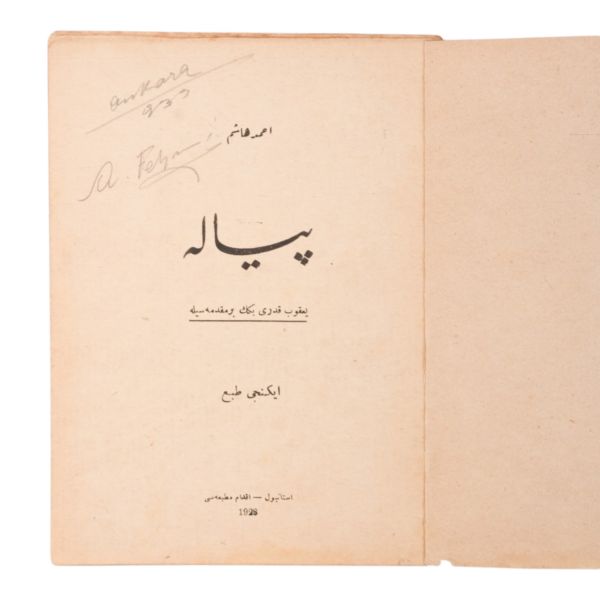 ankara
933
A. Fehmi
احمد هاشم
پیاله
یعقوب قدری بكك بر مقدمه‌سیله
ایكنجی طبع
استانبول — اقدام مطبعه‌سی
1928